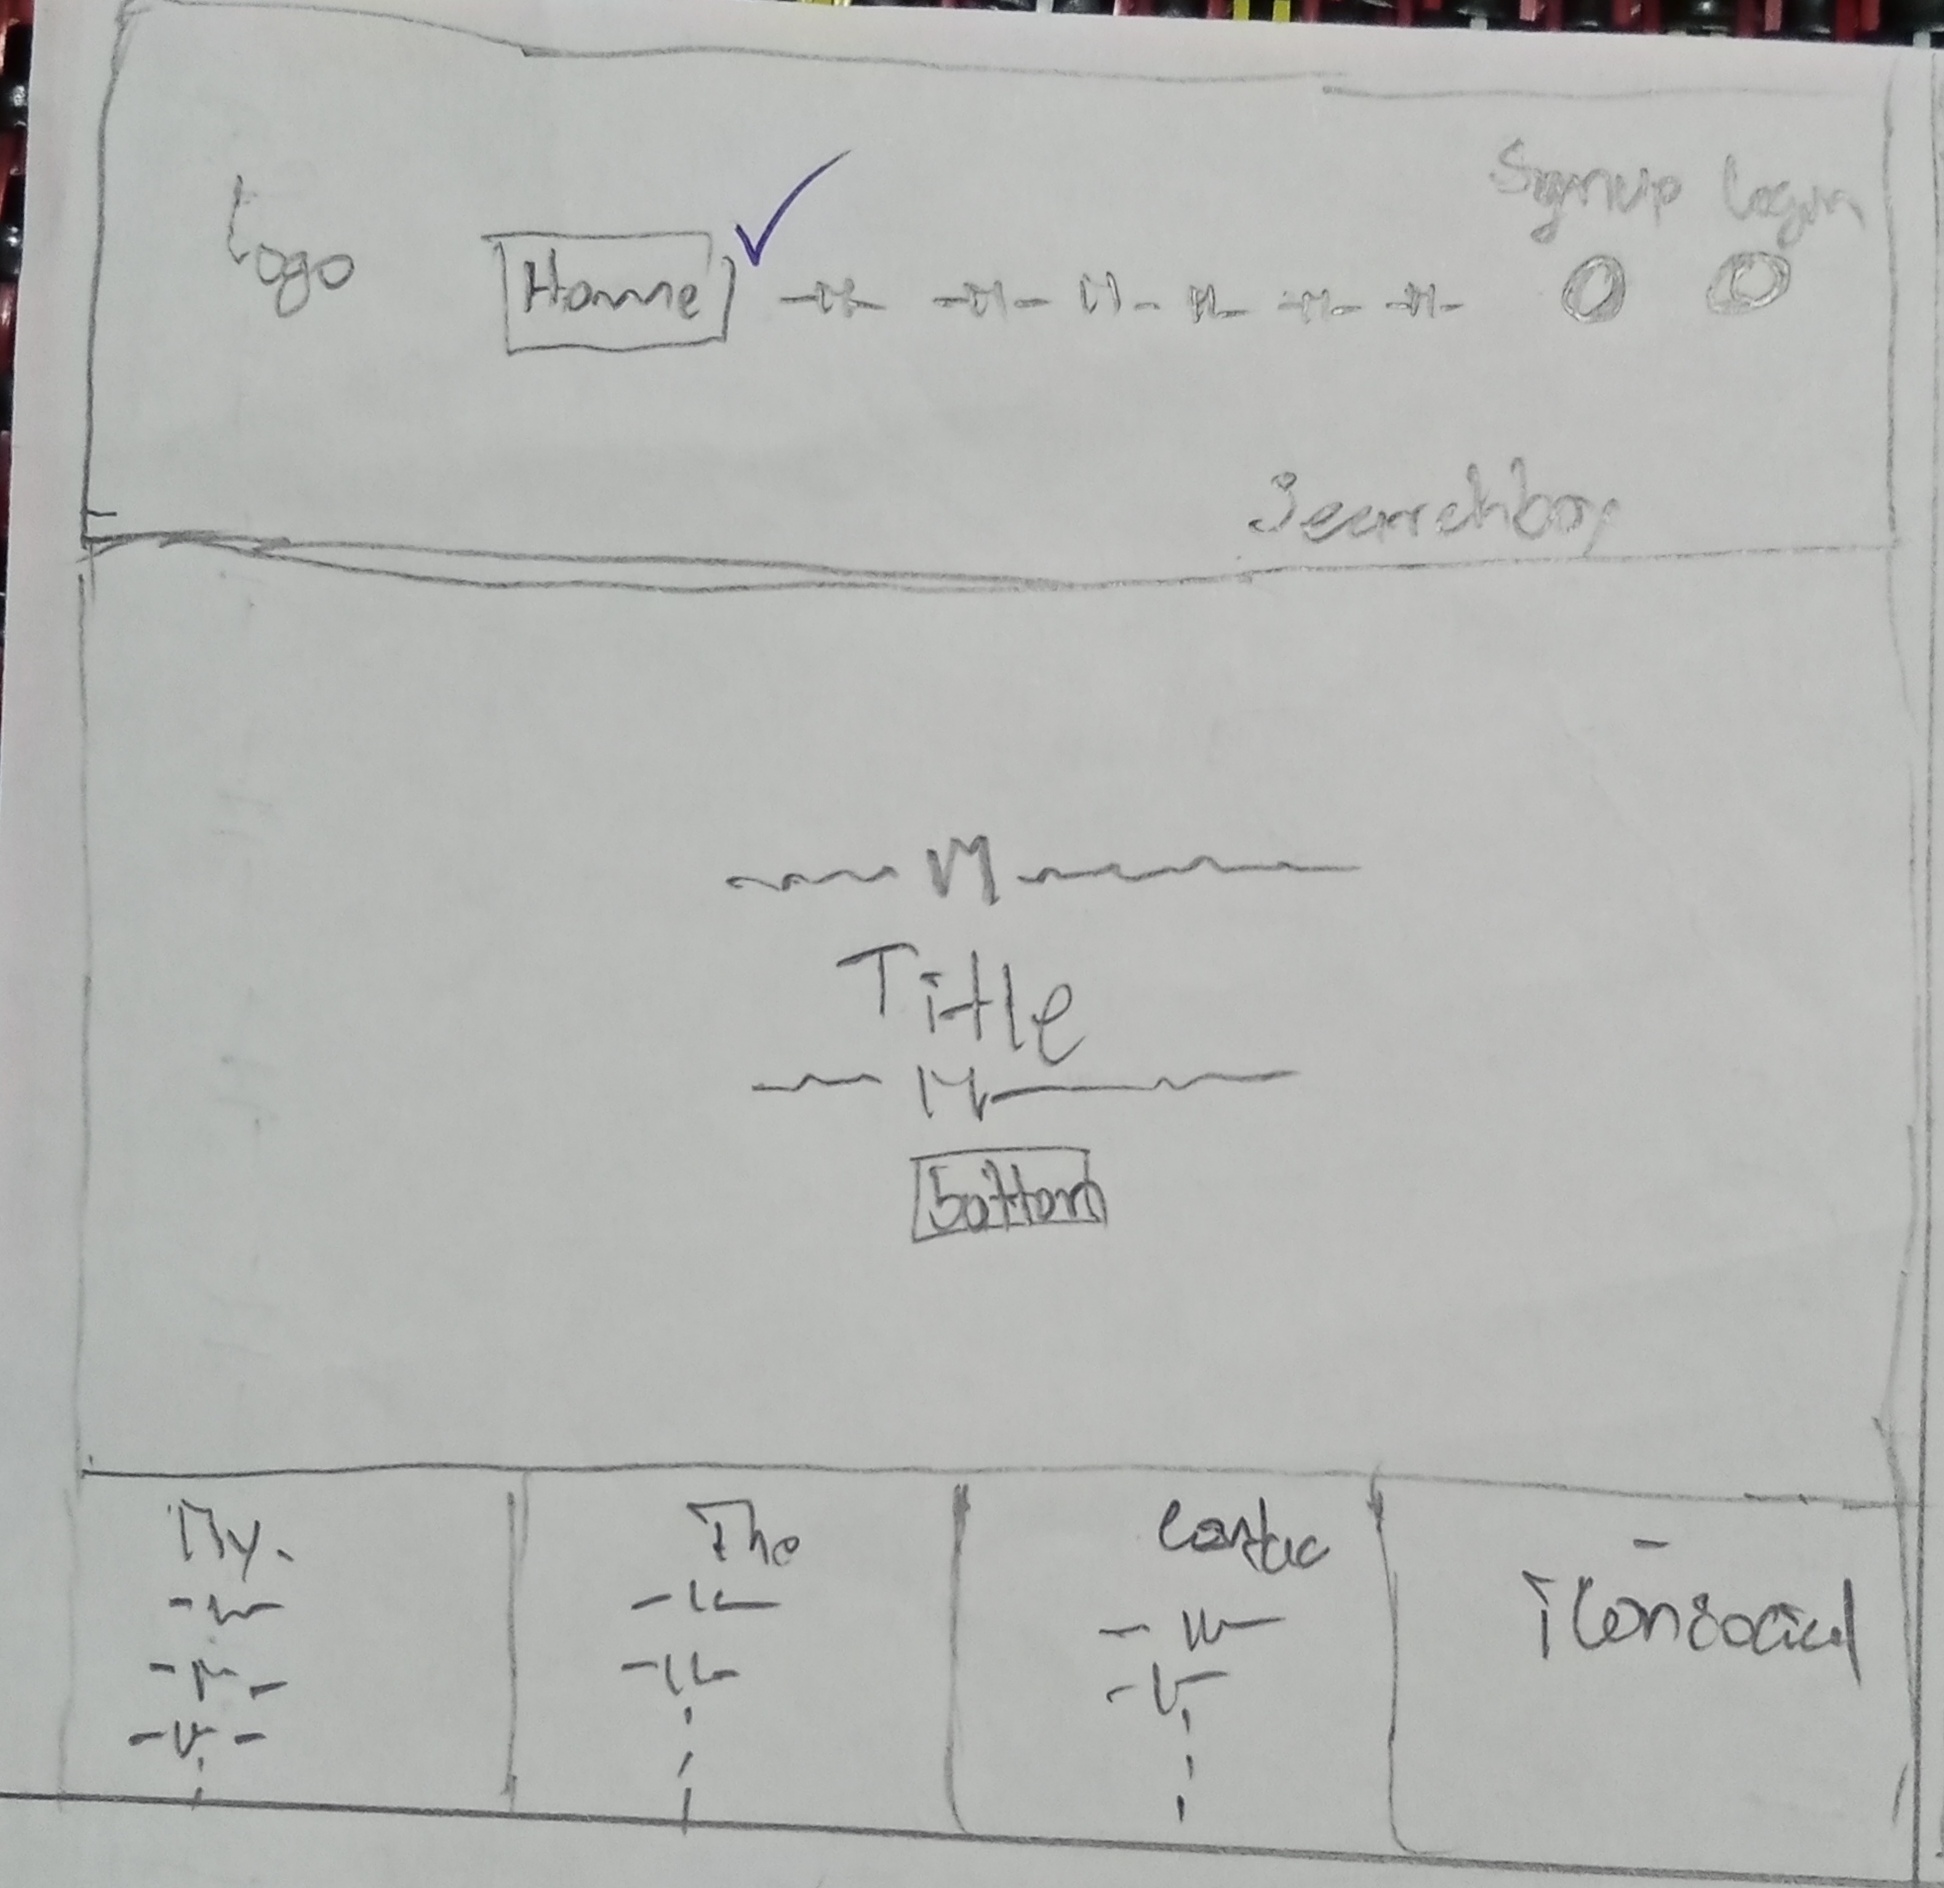 Logo
Home
Signup Login
Searchbox
Title
bottom
My.
The
Contac
iconsocial